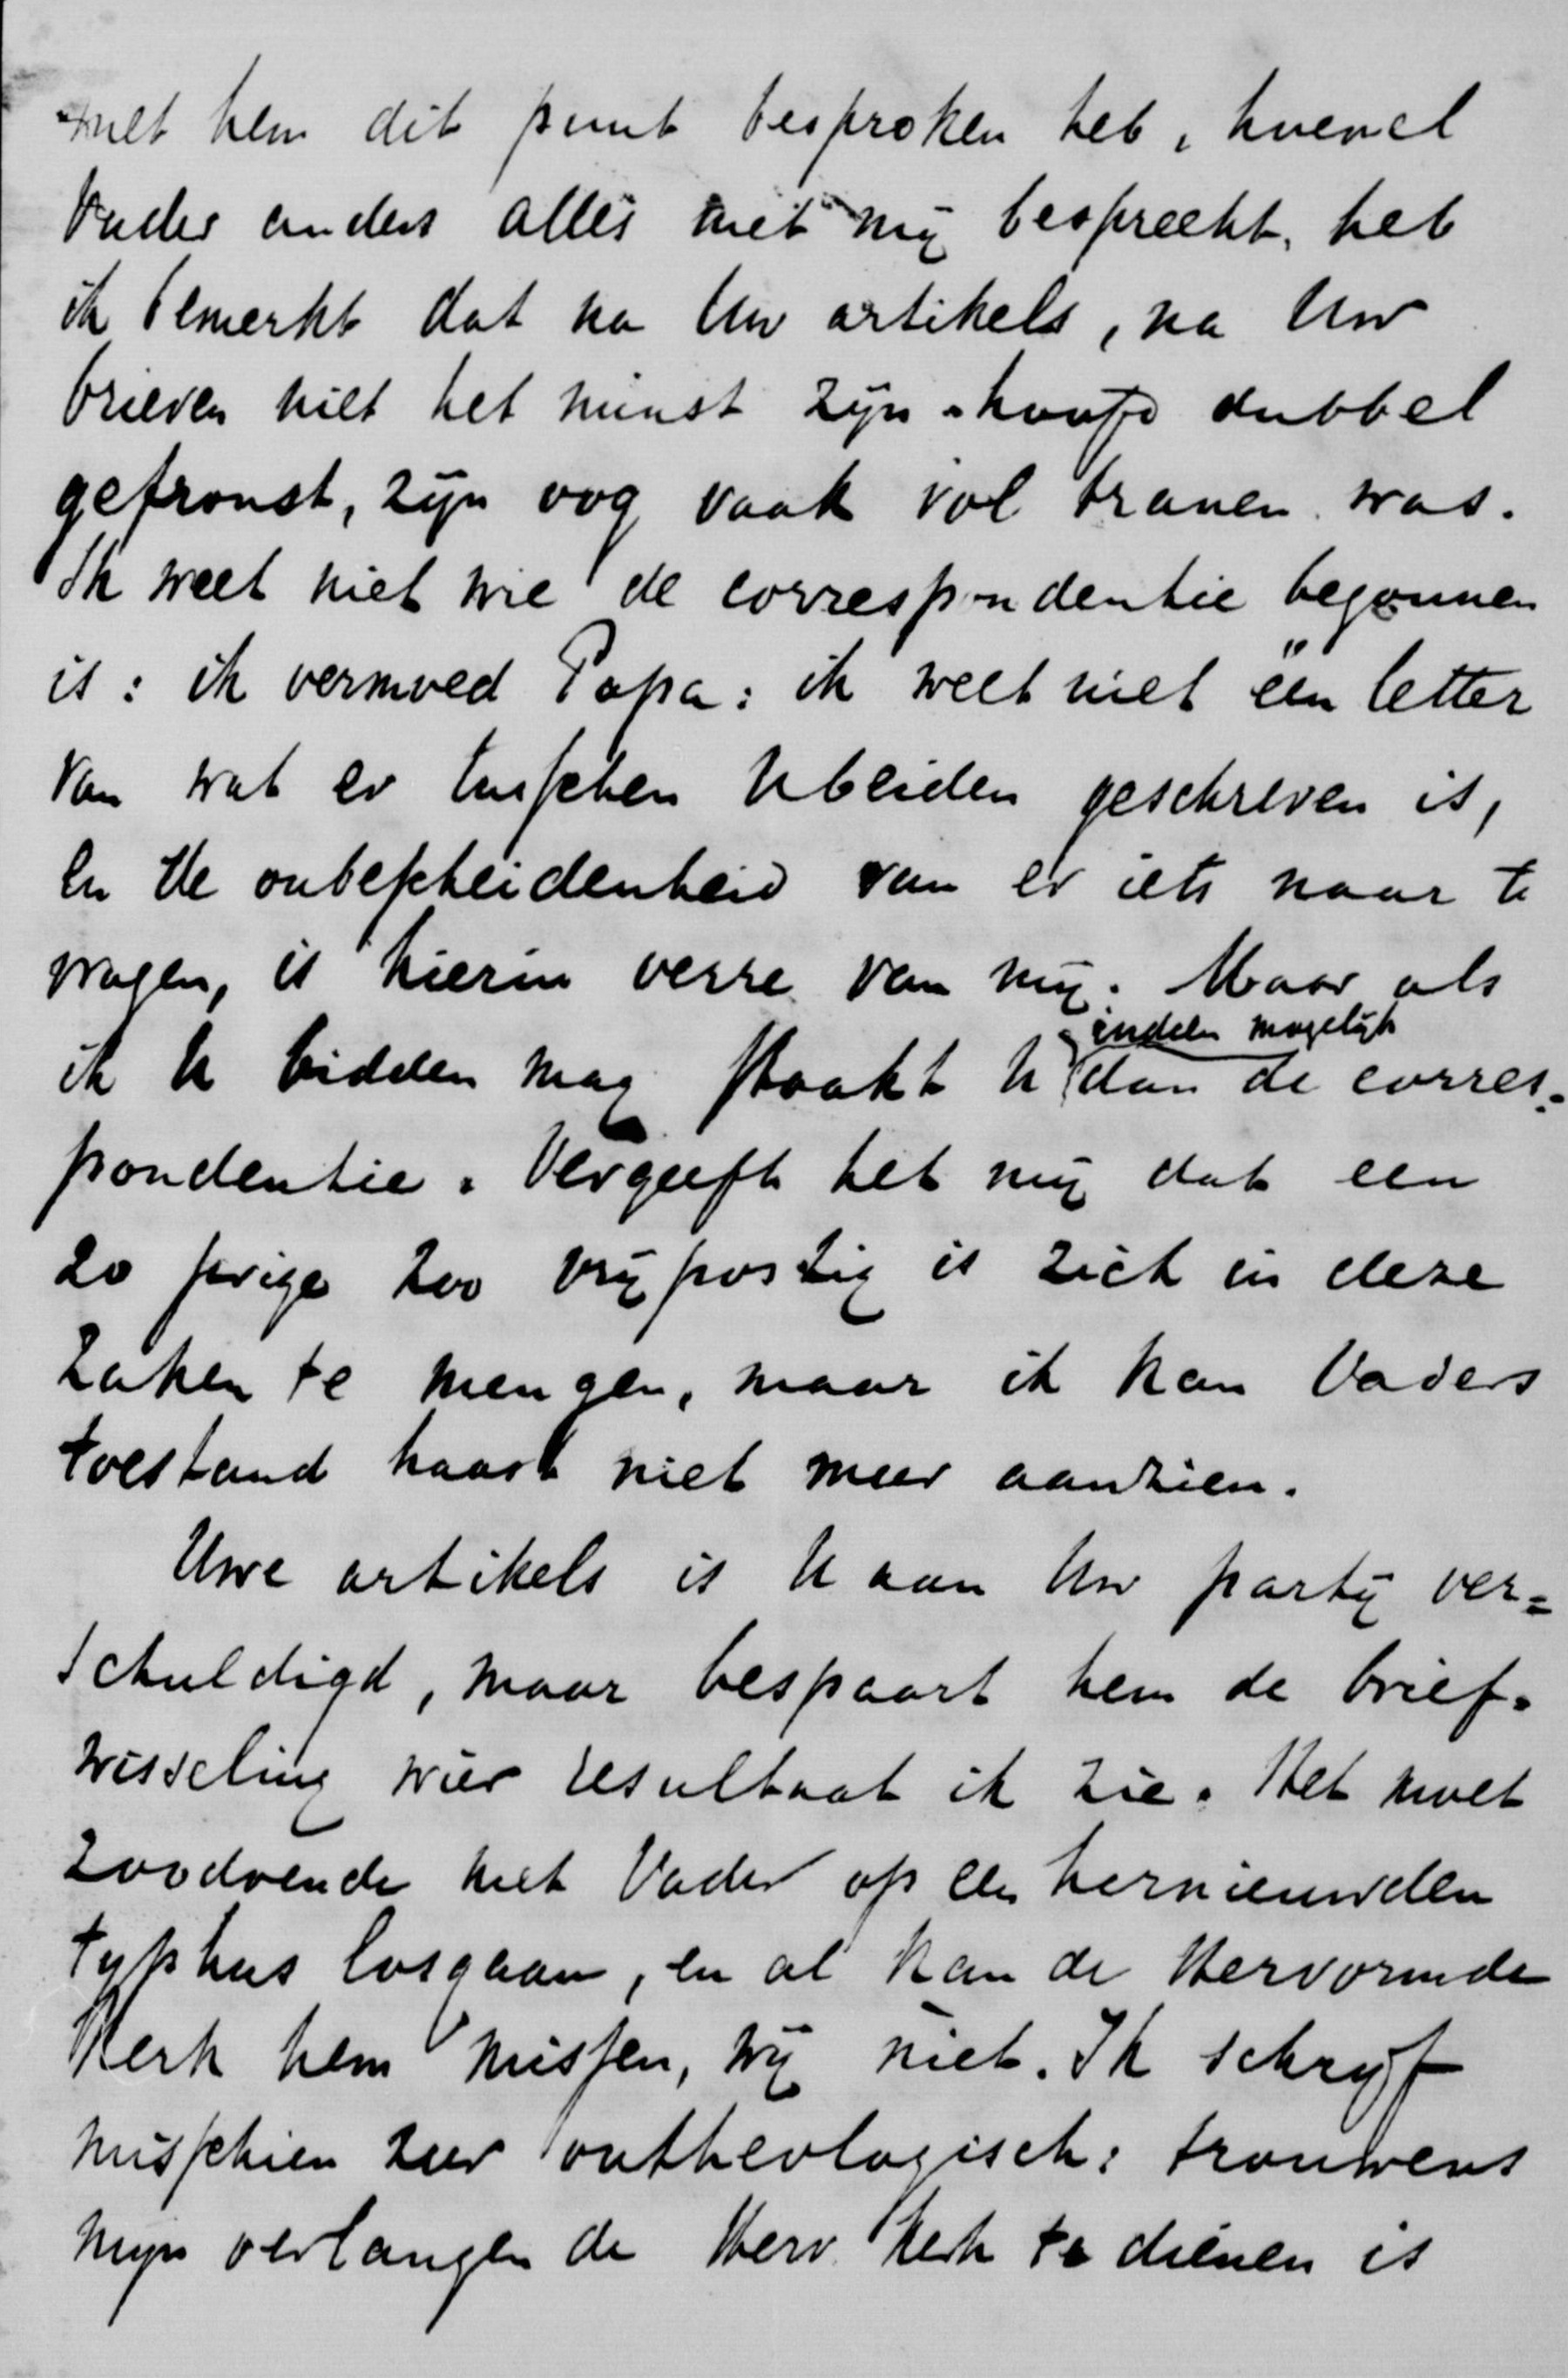 met hem dit punt besproken heb, hoewel
Vader anders alles met mij bespreekt, heb
ik bemerkt dat na Uw artikels, na Uw
brieven niet het minst zijn hoofd dubbel
gefronst, zijn oog vaak vol tranen was.
Ik weet niet wie de correspondentie begonnen
is: ik vermoed Papa: ik weet niet één letter
van wat er tusschen U beiden geschreven is,
en de onbescheidenheid van er iets naar te
vragen, is hierin verre van mij. Maar als
ik U bidden mag staakt U indien mogelijk dan de corres-
pondentie. Vergeeft het mij dat een
20 jarige zoo vrijpostig is zich in deze
zaken te mengen, maar ik kan Vaders
toestand haast niet meer aanzien.
Uwe artikels is U aan Uw partij ver=
schuldigd, maar bespaart hem de brief-
wisseling wier resultaat ik zie. Het moet
zoodoende met Vader op een hernieuwden
typhus losgaan, en al kan de Hervormde
Kerk hem missen, wij niet. Ik schrijf
misschien zeer ontheologisch: trouwens
mijn verlangen de Herv. Kerk te dienen is